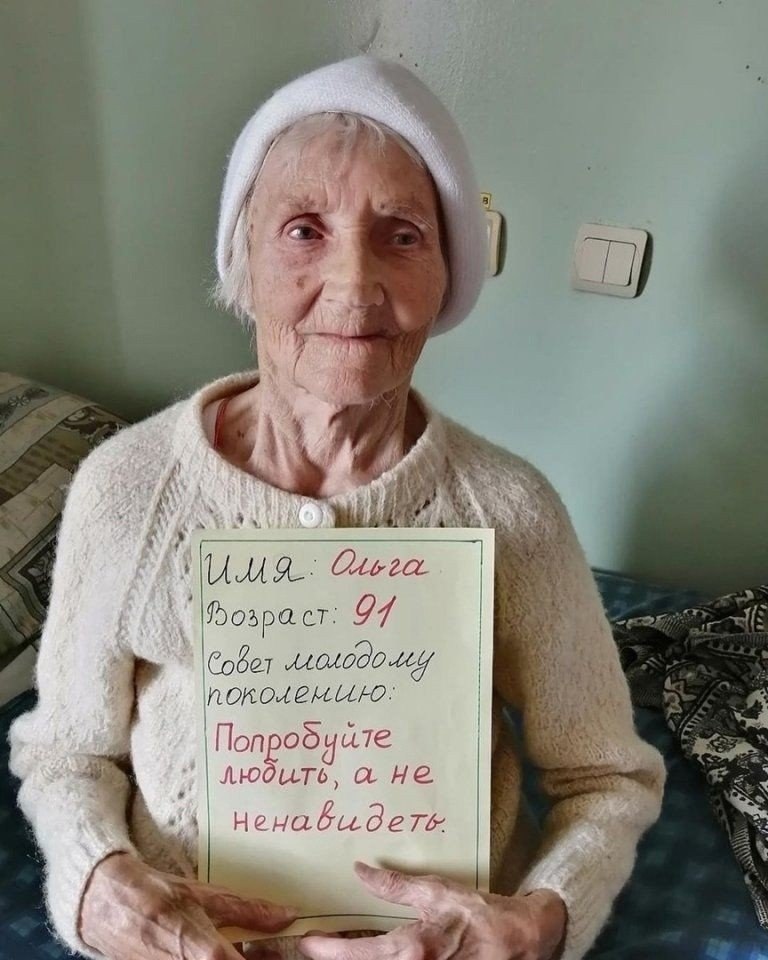 Имя: Ольга
Возраст: 91
Совет молодому
поколению:
Попробуйте
любить, а не
ненавидеть.
В